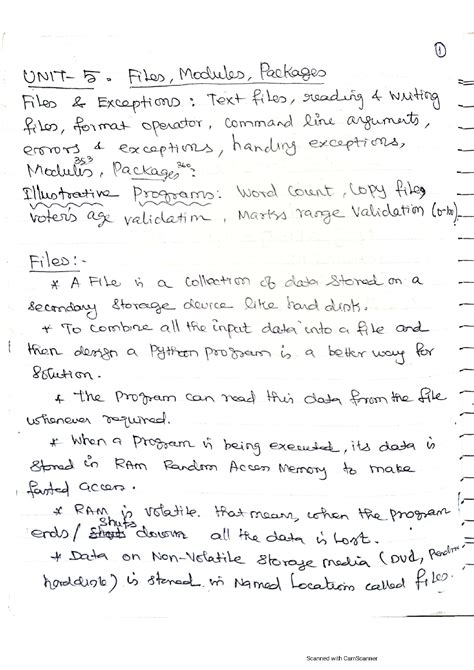 1
UNIT- 5. Files, Modules, Packages
Files & Exceptions: Text files, reading & writing
files, format operator, command line arguments,
errors & exceptions, handling exceptions,
353 360
Modules, Packages:
Illustrative Programs: Word Count, Copy files
Voter's age validation, Marks range Validation (0-100)
Files:-
* A File is a collection of data stored on a
secondary storage device like hard disk.
* To combine all the input data into a file and
then design a Python program is a better way for
solution.
* the program can read this data from the file
whenever required.
* When a program is being executed, its data is
stored in RAM Random Access Memory to make
fasted access.
* RAM is volatile. that means, when the program
ends/ shuts down all the data is lost.
* Data on Non-Volatile Storage media (DVD,
harddisk) is stored in Named Location called files.
Scanned with CamScanner